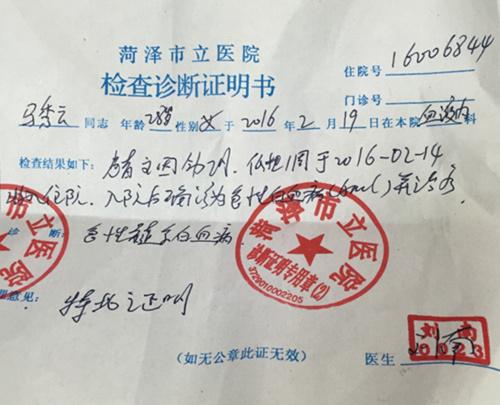 菏泽市立医院
检查诊断证明书
住院号 16006844
门诊号
同志 年龄 28岁 性别 女 于 2016 年 2 月 19 日在本院 血液内 科
检查结果如下: 1周于2016-02-14
住院. 入院后确诊为急性白血病
诊 断: 急性髓系白血病
意见: 特此证明
(如无公章此证无效)
医生
刘南
0023
菏泽市立医院
诊断证明专用章(2)
3729010002205